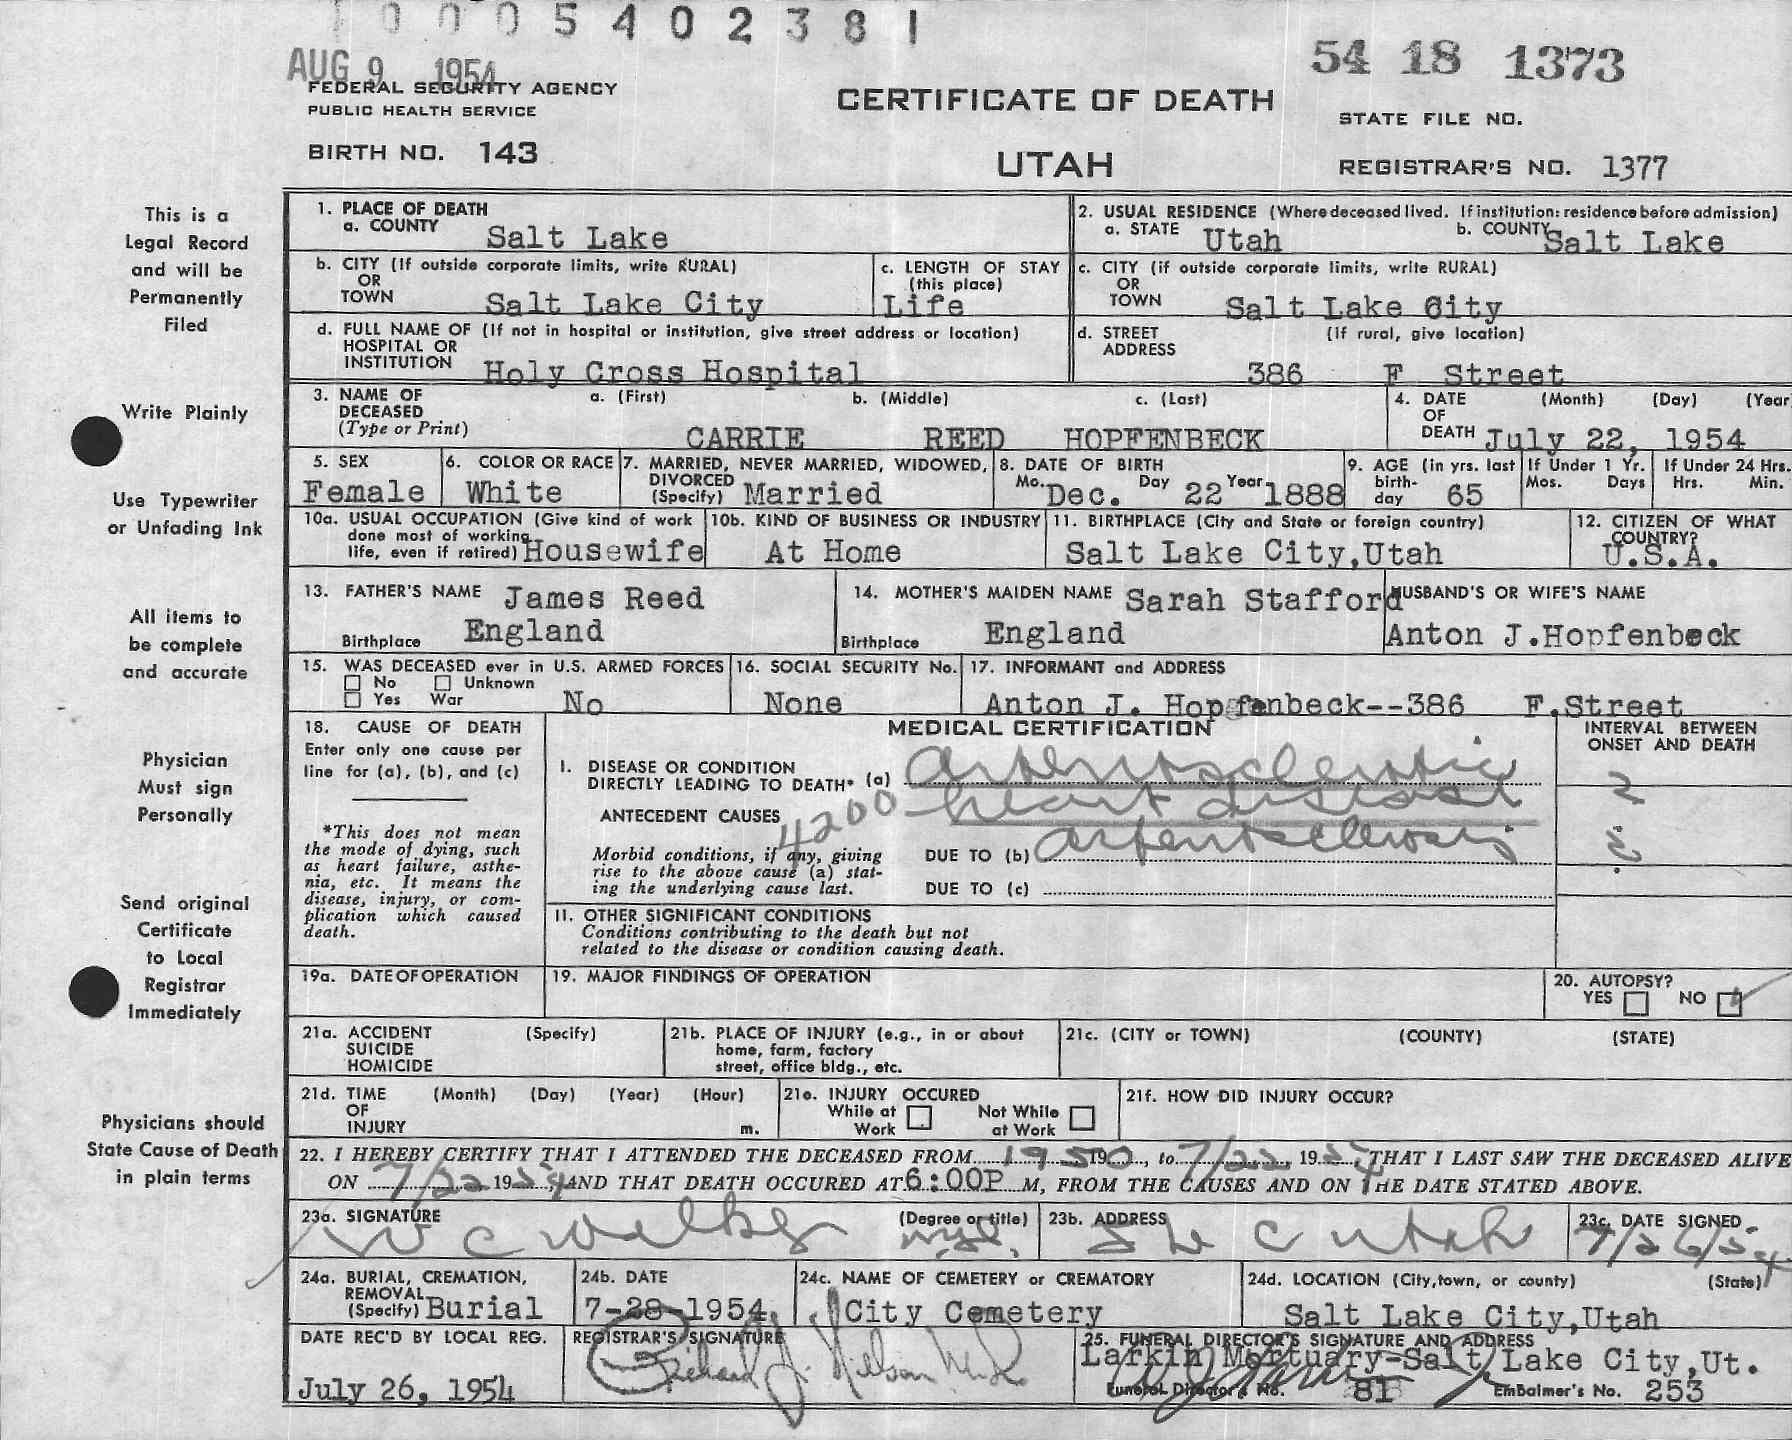 1 0 0 0 5 4 0 2 3 8 1
AUG 9 1954
54 18 1373
FEDERAL SECURITY AGENCY
PUBLIC HEALTH SERVICE
CERTIFICATE OF DEATH
STATE FILE NO.
BIRTH NO. 143
UTAH
REGISTRAR'S NO. 1377
This is a
Legal Record
and will be
Permanently
Filed
Write Plainly
Use Typewriter
or Unfading Ink
All items to
be complete
and accurate
Physician
Must sign
Personally
Send original
Certificate
to Local
Registrar
Immediately
Physicians should
State Cause of Death
in plain terms
1. PLACE OF DEATH
a. COUNTY Salt Lake
2. USUAL RESIDENCE (Where deceased lived. If institution: residence before admission)
a. STATE Utah b. COUNTY Salt Lake
b. CITY (If outside corporate limits, write RURAL)
OR
TOWN Salt Lake City
c. LENGTH OF STAY
(this place)
Life
c. CITY (if outside corporate limits, write RURAL)
OR
TOWN Salt Lake City
d. FULL NAME OF (If not in hospital or institution, give street address or location)
HOSPITAL OR
INSTITUTION Holy Cross Hospital
d. STREET (If rural, give location)
ADDRESS
386 F Street
3. NAME OF a. (First) b. (Middle) c. (Last)
DECEASED
(Type or Print) CARRIE REED HOPFENBECK
4. DATE (Month) (Day) (Year
OF
DEATH July 22, 1954
5. SEX
Female
6. COLOR OR RACE
White
7. MARRIED, NEVER MARRIED, WIDOWED,
DIVORCED
(Specify) Married
8. DATE OF BIRTH
Mo. Dec. Day 22 Year 1888
9. AGE (in yrs. last
birth-
day 65
If Under 1 Yr.
Mos. Days
If Under 24 Hrs.
Hrs. Min.
10a. USUAL OCCUPATION (Give kind of work
done most of working
life, even if retired) Housewife
10b. KIND OF BUSINESS OR INDUSTRY
At Home
11. BIRTHPLACE (City and State or foreign country)
Salt Lake City,Utah
12. CITIZEN OF WHAT
COUNTRY?
U.S.A.
13. FATHER'S NAME James Reed
Birthplace England
14. MOTHER'S MAIDEN NAME Sarah Stafford
Birthplace England
HUSBAND'S OR WIFE'S NAME
Anton J.Hopfenbeck
15. WAS DECEASED ever in U.S. ARMED FORCES
No Unknown
Yes War No
16. SOCIAL SECURITY No.
None
17. INFORMANT and ADDRESS
Anton J. Hopfenbeck--386 F.Street
18. CAUSE OF DEATH
Enter only one cause per
line for (a), (b), and (c)
*This does not mean
the mode of dying, such
as heart failure, asthe-
nia, etc. It means the
disease, injury, or com-
plication which caused
death.
MEDICAL CERTIFICATION
INTERVAL BETWEEN
ONSET AND DEATH
I. DISEASE OR CONDITION
DIRECTLY LEADING TO DEATH* (a) arteriosclerotic
heart disease
ANTECEDENT CAUSES 4200
Morbid conditions, if any, giving
rise to the above cause (a) stat-
ing the underlying cause last.
DUE TO (b) arteriosclerosis
DUE TO (c)
II. OTHER SIGNIFICANT CONDITIONS
Conditions contributing to the death but not
related to the disease or condition causing death.
19a. DATE OF OPERATION
19. MAJOR FINDINGS OF OPERATION
20. AUTOPSY?
YES NO
21a. ACCIDENT (Specify)
SUICIDE
HOMICIDE
21b. PLACE OF INJURY (e.g., in or about
home, farm, factory
street, office bldg., etc.
21c. (CITY or TOWN) (COUNTY) (STATE)
21d. TIME (Month) (Day) (Year) (Hour)
OF
INJURY m.
21e. INJURY OCCURED
While at Work Not While at Work
21f. HOW DID INJURY OCCUR?
22. I HEREBY CERTIFY THAT I ATTENDED THE DECEASED FROM 1950 19 , to 7/22, 1954, THAT I LAST SAW THE DECEASED ALIVE
ON 7/22 1954, AND THAT DEATH OCCURED AT 6:00P M, FROM THE CAUSES AND ON THE DATE STATED ABOVE.
23a. SIGNATURE (Degree or title)
W C Walker M.D.
23b. ADDRESS
S L C Utah
23c. DATE SIGNED
7/26/54
24a. BURIAL, CREMATION,
REMOVAL
(Specify) Burial
24b. DATE
7-28-1954
24c. NAME OF CEMETERY or CREMATORY
City Cemetery
24d. LOCATION (City,town, or county) (State)
Salt Lake City,Utah
DATE REC'D BY LOCAL REG.
July 26, 1954
REGISTRAR'S SIGNATURE
Richard J. Nelson
25. FUNERAL DIRECTOR'S SIGNATURE AND ADDRESS
Larkin Mortuary-Salt Lake City,Ut.
Funeral Director's No. 81 Embalmer's No. 253